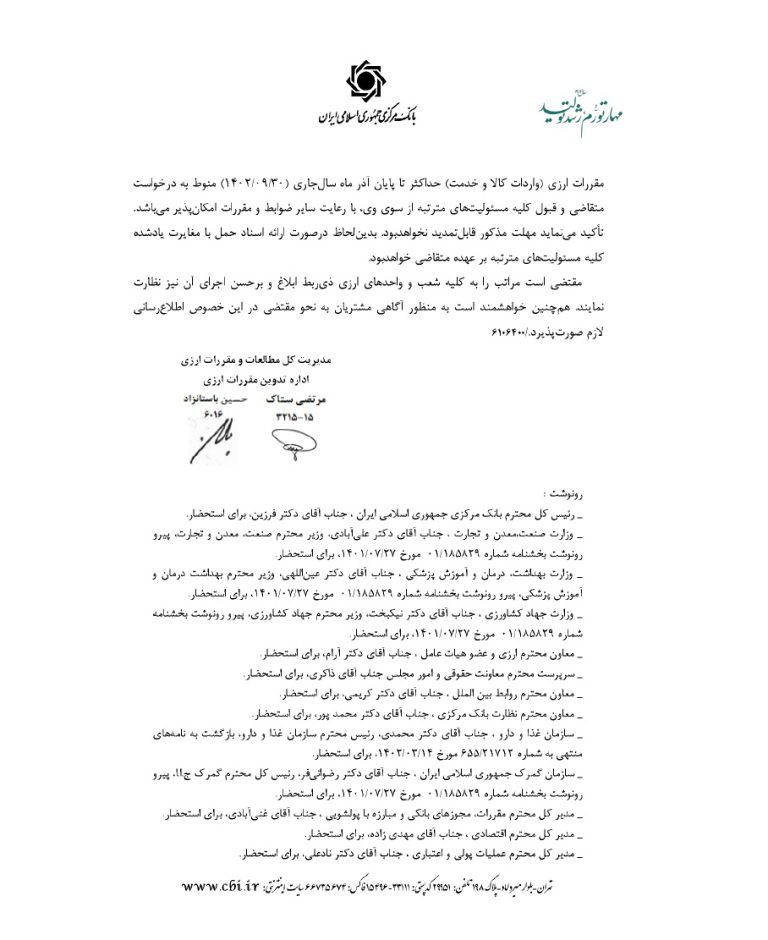 مهار تورم، رشد تولید
بانک مرکزی جمهوری اسلامی ایران
مقررات ارزی (واردات کالا و خدمت) حداکثر تا پایان آذر ماه سال‌جاری (۱۴۰۲/۰۹/۳۰) منوط به درخواست
متقاضی و قبول کلیه مسئولیت‌های مترتبه از سوی وی، با رعایت سایر ضوابط و مقررات امکان‌پذیر می‌باشد.
تأکید می‌نماید مهلت مذکور قابل‌تمدید نخواهدبود. بدین‌لحاظ درصورت ارائه اسناد حمل با مغایرت یادشده
کلیه مسئولیت‌های مترتبه بر عهده متقاضی خواهدبود.
مقتضی است مراتب را به کلیه شعب و واحدهای ارزی ذی‌ربط ابلاغ و برحسن اجرای آن نیز نظارت
نمایند. هم‌چنین خواهشمند است به منظور آگاهی مشتریان به نحو مقتضی در این خصوص اطلاع‌رسانی
لازم صورت‌پذیرد./۶۱۰۶۴۰۰
مدیریت کل مطالعات و مقررات ارزی
اداره تدوین مقررات ارزی
مرتضی ستاک حسین باستانزاد
۳۲۱۵-۱۵ ۶۰۱۶
رونوشت :
_ رئیس کل محترم بانک مرکزی جمهوری اسلامی ایران ، جناب آقای دکتر فرزین، برای استحضار.
_ وزارت صنعت،معدن و تجارت ، جناب آقای دکتر علی‌آبادی، وزیر محترم صنعت، معدن و تجارت، پیرو
رونوشت بخشنامه شماره ۰۱/۱۸۵۸۲۹ مورخ ۱۴۰۱/۰۷/۲۷، برای استحضار.
_ وزارت بهداشت، درمان و آموزش پزشکی ، جناب آقای دکتر عین‌اللهی، وزیر محترم بهداشت درمان و
آموزش پزشکی، پیرو رونوشت بخشنامه شماره ۰۱/۱۸۵۸۲۹ مورخ ۱۴۰۱/۰۷/۲۷، برای استحضار.
_ وزارت جهاد کشاورزی ، جناب آقای دکتر نیکبخت، وزیر محترم جهاد کشاورزی، پیرو رونوشت بخشنامه
شماره ۰۱/۱۸۵۸۲۹ مورخ ۱۴۰۱/۰۷/۲۷، برای استحضار.
_ معاون محترم ارزی و عضو هیات عامل ، جناب آقای دکتر آرام، برای استحضار.
_ سرپرست محترم معاونت حقوقی و امور مجلس جناب آقای ذاکری، برای استحضار.
_ معاون محترم روابط بین الملل ، جناب آقای دکتر کریمی، برای استحضار.
_ معاون محترم نظارت بانک مرکزی ، جناب آقای دکتر محمد پور، برای استحضار.
_ سازمان غذا و دارو ، جناب آقای دکتر محمدی، رئیس محترم سازمان غذا و دارو، بازگشت به نامه‌های
منتهی به شماره ۶۵۵/۲۱۷۱۲ مورخ ۱۴۰۲/۰۳/۱۴، برای استحضار.
_ سازمان گمرک جمهوری اسلامی ایران ، جناب آقای دکتر رضوانی‌فر، رئیس کل محترم گمرک ج.ا.ا، پیرو
رونوشت بخشنامه شماره ۰۱/۱۸۵۸۲۹ مورخ ۱۴۰۱/۰۷/۲۷، برای استحضار.
_ مدیر کل محترم مقررات، مجوزهای بانکی و مبارزه با پولشویی ، جناب آقای غنی‌آبادی، برای استحضار.
_ مدیر کل محترم اقتصادی ، جناب آقای مهدی زاده، برای استحضار.
_ مدیر کل محترم عملیات پولی و اعتباری ، جناب آقای دکتر نادعلی، برای استحضار.
تهران-بلوار میرداماد-پلاک ۱۹۸ تلفن: ۲۹۹۵۱ کدپستی: ۳۳۱۱۱-۱۵۴۹۶ فاکس: ۶۶۷۳۵۶۷۴ سایت اینترنتی: www.cbi.ir